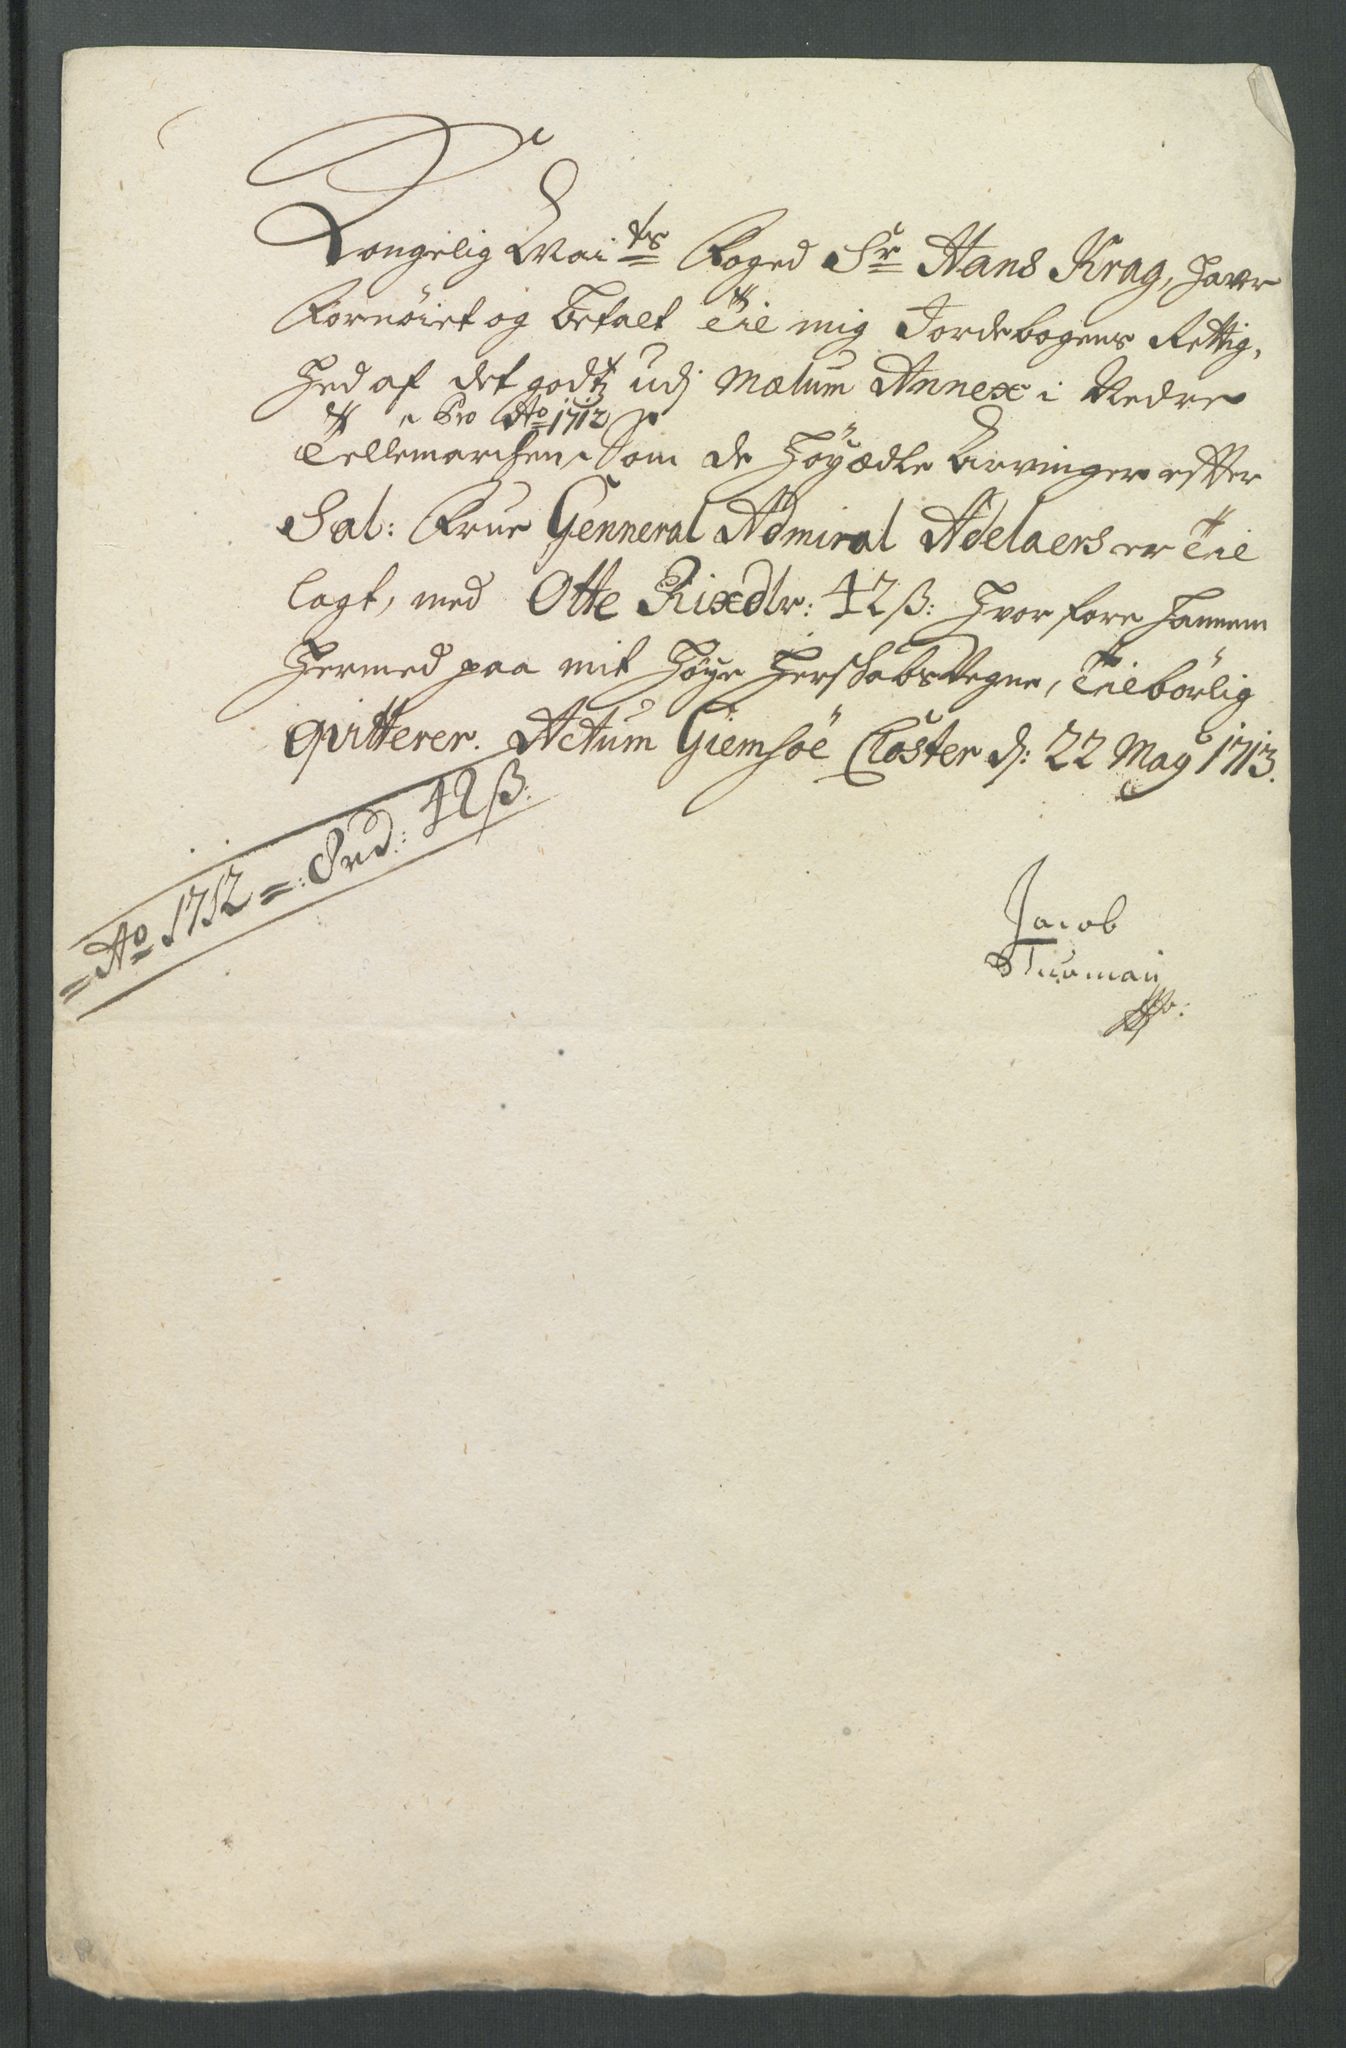 Kongelig Mai:ts Foged Sr Hans Krag, hafr
Fornöiet og betalt Til mig Jordebogens Rettig,
hed af det godtz udj Mælum Annex i Nedre
Pro Ao 1712
Tellemarchen, Som de Höyædle Arvinger effter
Sal: Frue Genneral Admiral Adelaers er Til
lagt, med Otte Rixdlr: 42 ß: hvorfore hannem
hermed paa mit Høye Herschabs Vegne, Tilbörlig
qvitterer. Actum Giemsöe Closter d: 22 Maÿ 1713.
= Ao 1712 =: 8rd: 42 ß:
Jacob